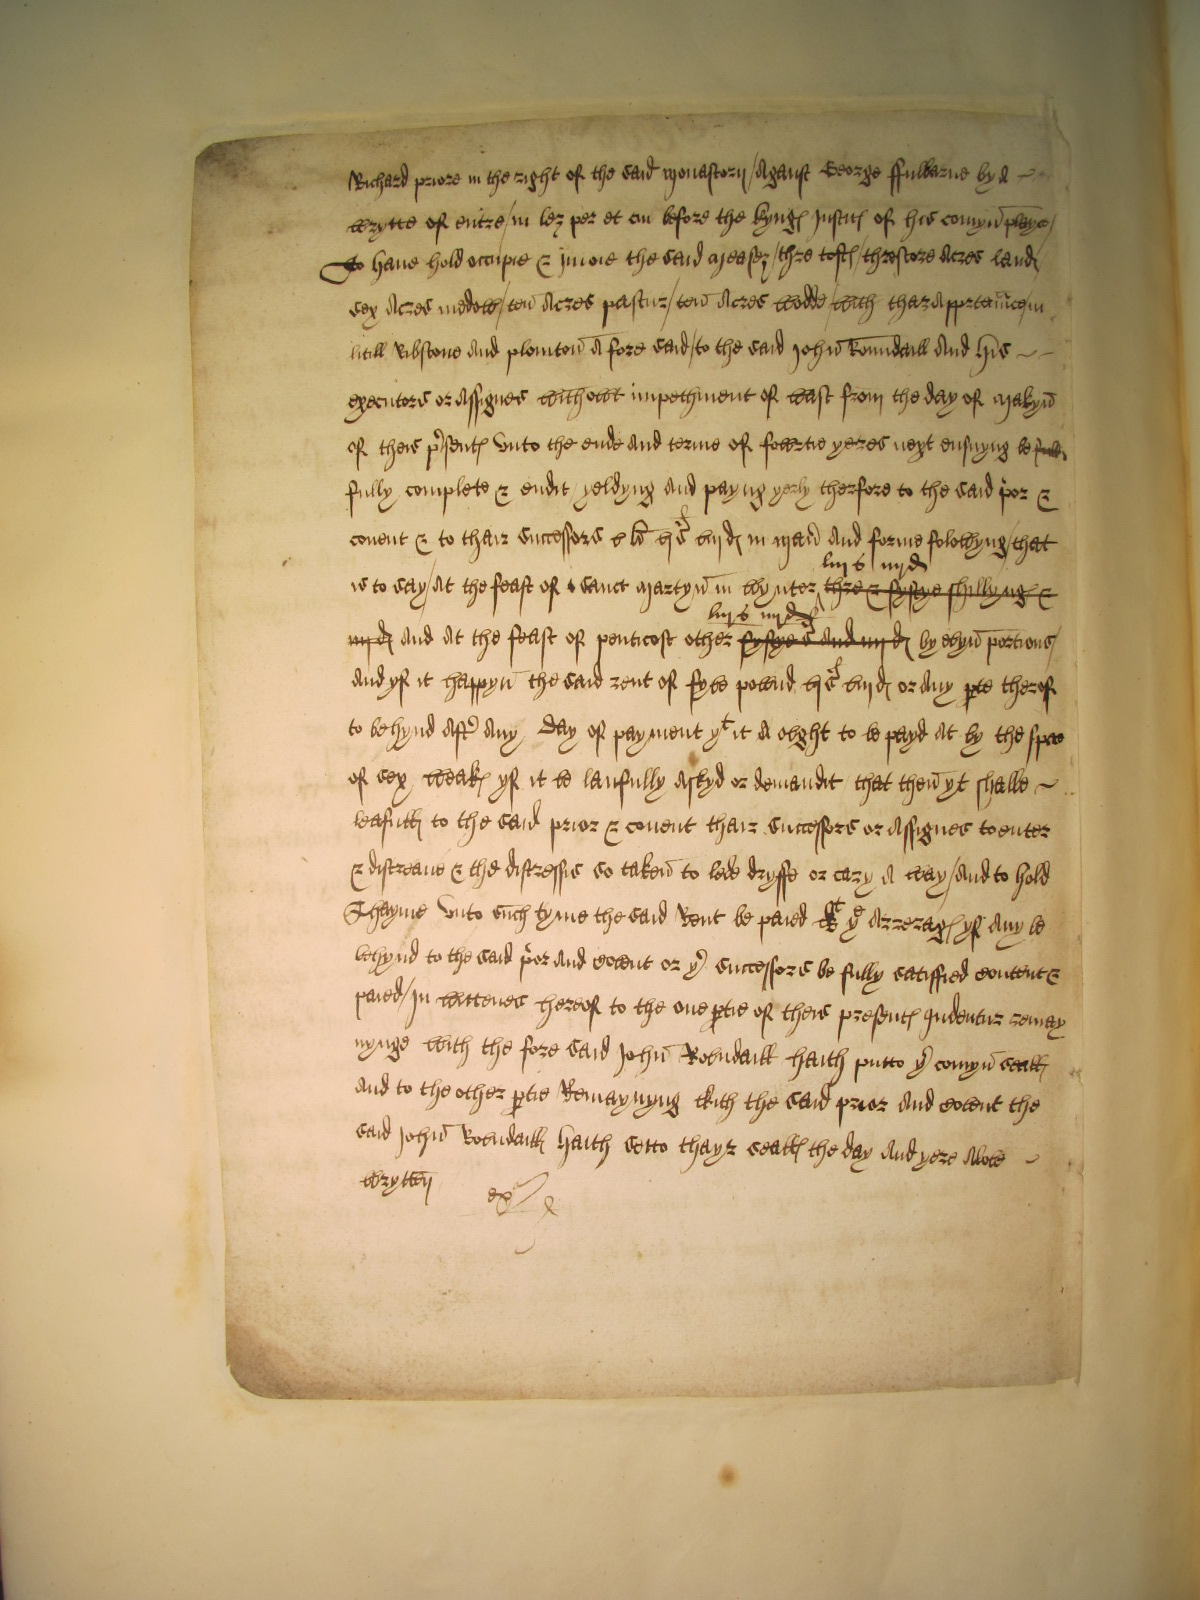 Richard priore in the right of the said monastorij / Aganst George ffulbarne by A
wrytte of entre / in lez per et cui before the kyngꝭ Justicꝭ of his comyn̄ playce /
To haue hold occupie & Jnioie the said measez / thre toftꝭ / threscore Acres landꝭ
sex Acres medow / ten̄ Acres pastur / ten̄ Acres wodde / with thar Apprtenn̄ce / in
litill Ribstone And plomton̄ A fore said / to the said John̄ Roundaill And his
executors or Assignes without impethment of wast from the day of makyn̄
of theis p̄sentꝭ vnto the ende And terme of fowrtie yeres next ensuyng be full
fully complete & endit yeldyng And payng yerly therfore to the said p̄or &
conent & to thair successors vjs viijd in man̄ And forme folowyng / that
is to say / At the feast of sanct Martyn̄ in wynter thre & fyftye shillyngꝭ &
liijs iiijd
iiijd And At the feast of penticost other fyftye s And iiijd by evyn̄ portions /
liijs iiijd
And yf it happyn̄ the said rent of fyve pownd vjs viijd or Any pte therof
to behynd Aft̄ Any Day of payment yt it A oght to be payd At by the space
of sex weakꝭ yf it be laufully Askyd or demandit that then̄ yt shalbe
leafull to the said prior & conent thair successors or Assignes to enter
& distreane & the distressis so taken̄ to lede dryffe or cary A way / And to hold
Thayme vnto such tyme the said Rent be paied & ye Arreragꝭ yf Any be
behynd to the said p̄or And covent or yr successors be fully satisfied content &
paied / In wittenes hereof to the one ptie of theis presentꝭ Indentur remay
nynge with the fore said John̄ Rowndaill haith putto yr comyn̄ seall
And to the other ptie Remaynyng with the said prior And covent the
said John̄ Rowndaill haith setto thayr seallꝭ the day And yere Above
wrytten
ex